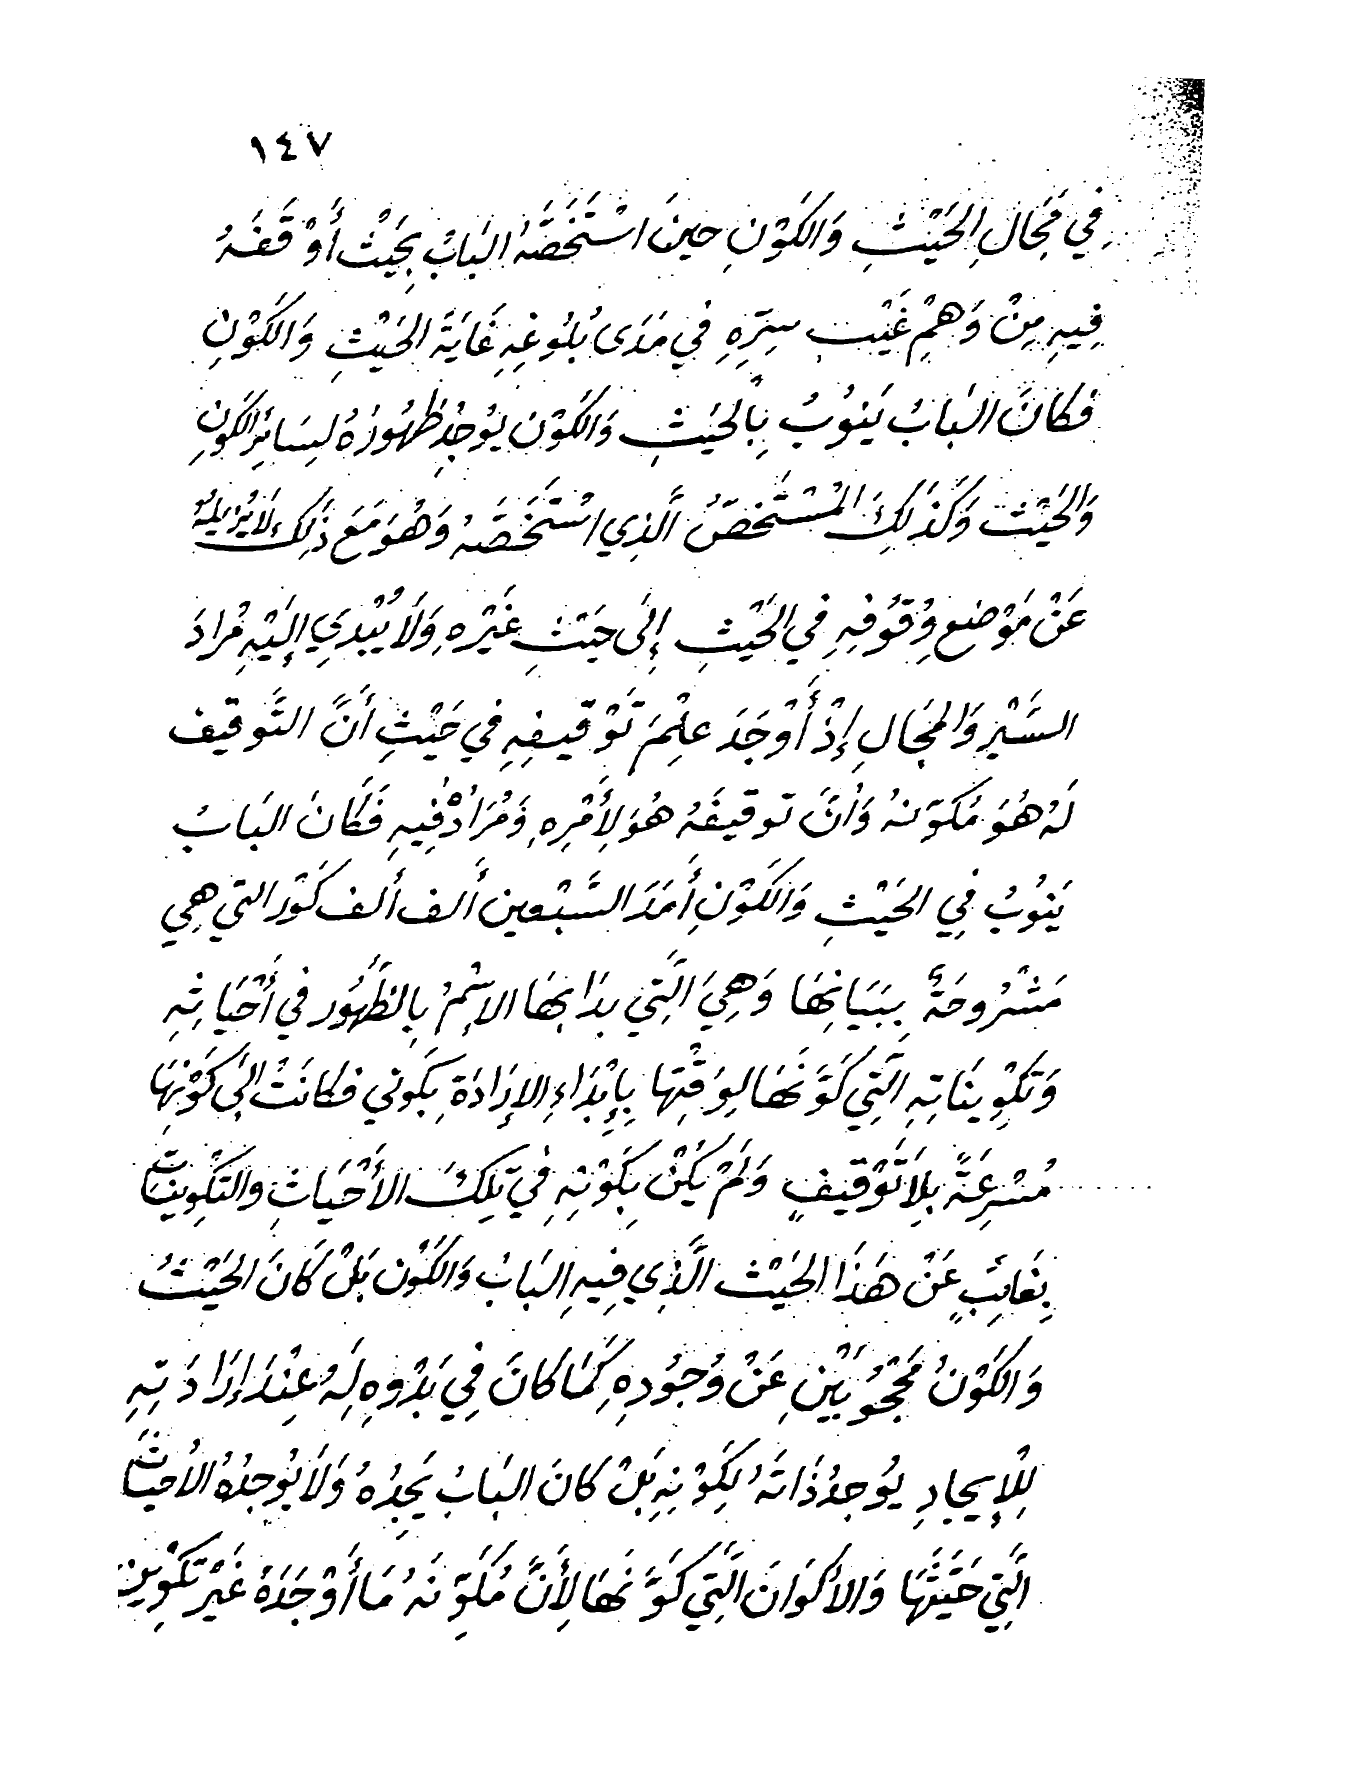 ١٤٧
فِي مَجَالِ الحَيْثِ وَالكَوْنِ حِينَ اسْتَخَصَّهُ البَابُ بِحَيْثُ أَوْقَفَهُ
فِيهِ مِنْ وَهْمِ غَيْبِ سِرِّهِ فِي مَدَى بُلُوغِهِ غَايَةَ الحَيْثِ وَالكَوْنِ
فَكَانَ البَابُ يَنُوبُ بِالحَيْثِ وَالكَوْن يُوجِدُ ظُهُورَهُ لِسَائِرِ الكَوْنِ
وَالحَيْث وَكَذَلِكَ المُسْتَخَصُّ الَّذِي اسْتَخَصَّهُ وَهُوَ مَعَ ذَلِكَ لَا يُزِيلُهُ
عَنْ مَوْضِعِ وُقُوفِهِ فِي الحَيْثِ إِلَى حَيْثِ غَيْرِهِ وَلَا يُبْدِي إِلَيْهِ مُرَادَ
السَّيْرِ وَالمَجَالِ إِذْ أَوْجَدَ عِلْمَ تَوْقِيفِهِ فِي حَيْثِ أَنَّ التَّوقِيف
لَهُ هُوَ مُكَوِّنهُ وَأَنَّ توقيفَهُ هُوَ لِأَمْرِهِ وَمُرَادٌ فِيهِ فَكَانَ البَابُ
يَنُوبُ فِي الحَيْثِ وَالكَوْنِ أَمَدَ السَّبْعِين أَلف أَلف كَوْر التي هِي
مَشْرُوحَةٌ بِبَيَانِهَا وَهِيَ الَّتِي بدَا بِهَا الاسْمُ بِالظُّهُور فِي أَحْيَاثِهِ
وَتَكْوِينَاتِهِ الَّتِي كَوَّنَهَا لِوَقْتِهَا بِإِبْدَاءِ الإرَادَة بِكَوني فكانَتْ إِلَى كَوْنِهَا
مُسْرِعَةً بِلَا تَوْقِيفٍ وَلَمْ يَكُنْ بِكَوْنِهِ فِي تِلكَ الأَحْيَاثِ وَالتَّكْوِينَاتِ
بِغَائِبٍ عَنْ هَذَا الحَيْث الَّذِي فِيهِ البَابُ وَالكَوْن بَلْ كَانَ الحَيْثُ
وَالكَوْنُ مَحْجُوبَيْنِ عَنْ وُجُودِهِ كَمَا كَانَ فِي بَدْوِهِ لَهُ عِنْدَ إِرَادَتِهِ
لِلْإِيجَادِ يُوجِدُ ذَاتَهُ لِكَوْنِهِ بَلْ كَانَ البَابُ يَجِدُهُ وَلَا يُوجِدُهُ الأَحْيَاثَ
الَّتِي حَيَّثَهَا وَالأَكْوَانَ الَّتِي كَوَّنَهَا لِأَنَّ مُكَوِّنَهُ مَا أَوْجَدَهُ غَيْر تَكْوِين